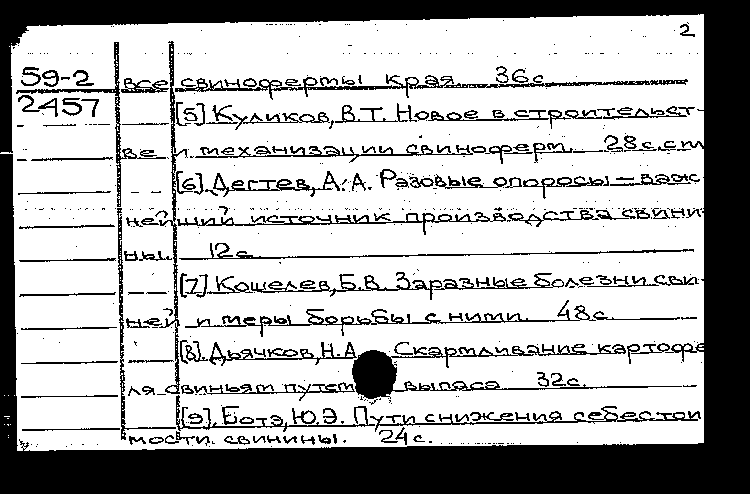 2
59-2 все свиноферты края. 36с.
2457 [5] Куликов, В.Т. Новое в строительст-
ве и механизации свиноферм. 28с.с
[6]. Дегтев, А.А. Разовые опоросы — важ-
нейший источник производства свини-
ны. 12с.
[7] Кошелев, Б.В. Заразные болезни сви-
ней и меры борьбы с ними. 48с.
[8]. Дьячков, Н.А. Скармливание картофе
ля свиньям путем выпаса 32с.
[9]. Ботэ, Ю.Э. Пути снижения себестои
мости свинины. 24с.